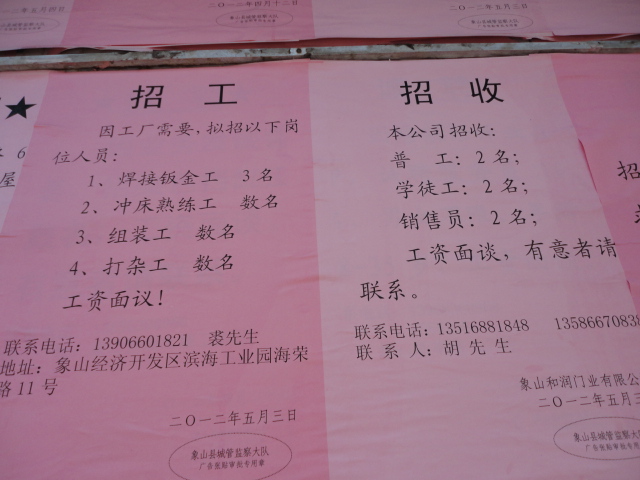 二〇一二年五月四日
二〇一二年四月十三日
二〇一二年五月三日
象山县城管监察大队
广告张贴审批专用章
★
6
屋
招工
因工厂需要,拟招以下岗
位人员:
1、焊接钣金工 3名
2、冲床熟练工 数名
3、组装工 数名
4、打杂工 数名
工资面议!
联系电话: 13906601821 裘先生
地址: 象山经济开发区滨海工业园海荣
路11号
二〇一二年五月三日
象山县城管监察大队
广告张贴审批专用章
招收
本公司招收:
普 工: 2名;
学徒工: 2名;
销售员: 2名;
工资面谈, 有意者请
联系。
联系电话: 13516881848 1358667083
联 系 人: 胡 先 生
象山和润门业有限公
二〇一二年五月三
象山县城管监察大队
广告张贴审批专用章
招